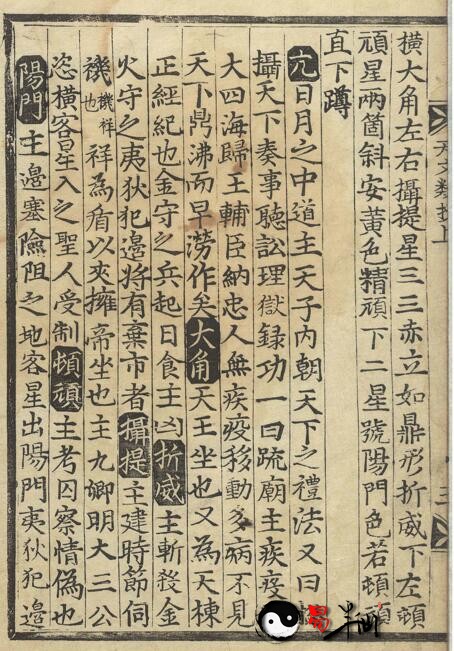 天文類抄上
三
橫大角左右攝提星三三赤立如鼎形折威下左頓
頑星兩箇斜安黃色精頑下二星號陽門色若頓頑
直下蹲
亢日月之中道主天子內朝天下之禮法又曰
攝天下奏事聽訟理獄錄功一曰疏廟主疾疫
大四海歸王輔臣納忠人無疾疫移動多病不見
天下鼎沸而旱澇作矣大角天王坐也又為天棟
正經紀也金守之兵起日食主凶折威主斬殺金
火守之夷狄犯邊將有棄市者攝提主建時節伺
禨禨祥也祥為盾以夾擁帝坐也主九卿明大三公
恣橫客星入之聖人受制頓頑主考囚察情偽也
陽門主邊塞險阻之地客星出陽門夷狄犯邊